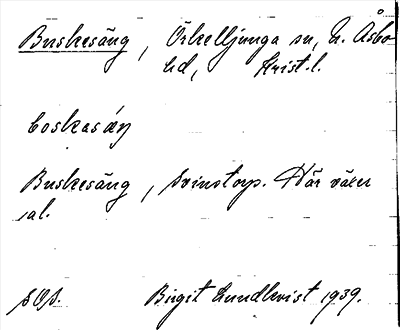 Buskesäng, Örkelljunga sn, N. Åsbo
hd, Krist.l.
boskasæŋ
Buskesäng, Svinstorp. Här växer
al.
sOs.    Birgit Lundkvist 1939.